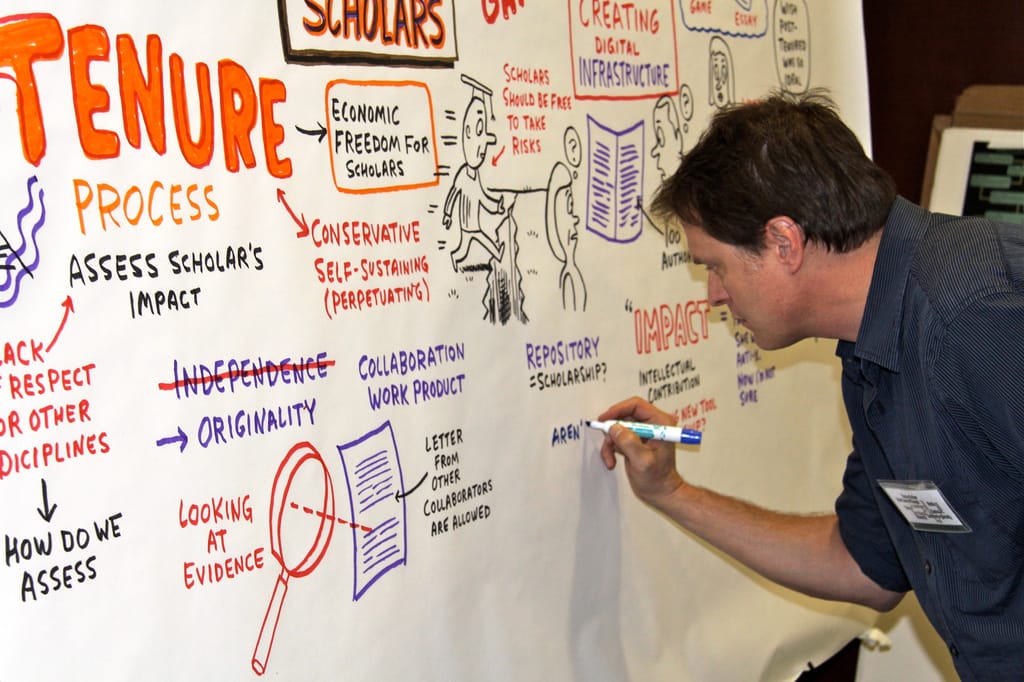 SCHOLARS
TENURE
PROCESS
ASSESS SCHOLAR'S
IMPACT
ECONOMIC
FREEDOM FOR
SCHOLARS
CONSERVATIVE
SELF-SUSTAINING
(PERPETUATING)
SCHOLARS
SHOULD BE FREE
TO TAKE
RISKS
CREATING
DIGITAL
INFRASTRUCTURE
GAME
ESSAY
?
?
TOO
LACK
RESPECT
FOR OTHER
DICIPLINES
HOW DO WE
ASSESS
INDEPENDENCE
ORIGINALITY
COLLABORATION
WORK PRODUCT
LOOKING
AT
EVIDENCE
LETTER
FROM
OTHER
COLLABORATORS
ARE ALLOWED
REPOSITORY
=SCHOLARSHIP?
AREN'
"IMPACT
INTELLECTUAL
CONTRIBUTION
NEW TOOL
NOW I'M NOT
SURE